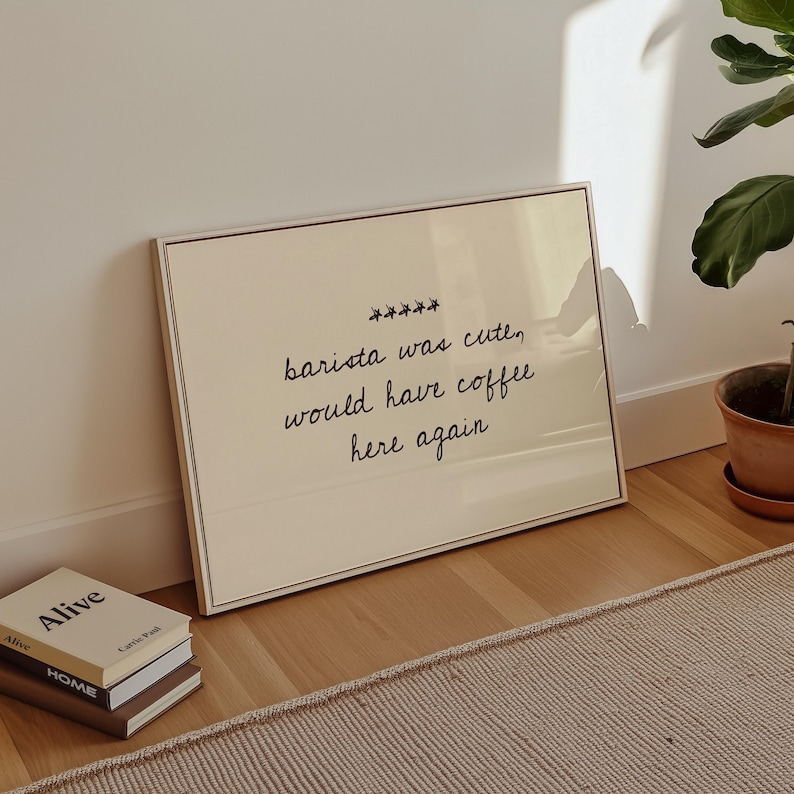 ★★★★★
barista was cute,
would have coffee
here again
Alive
Carrie Paul
Alive
HOME